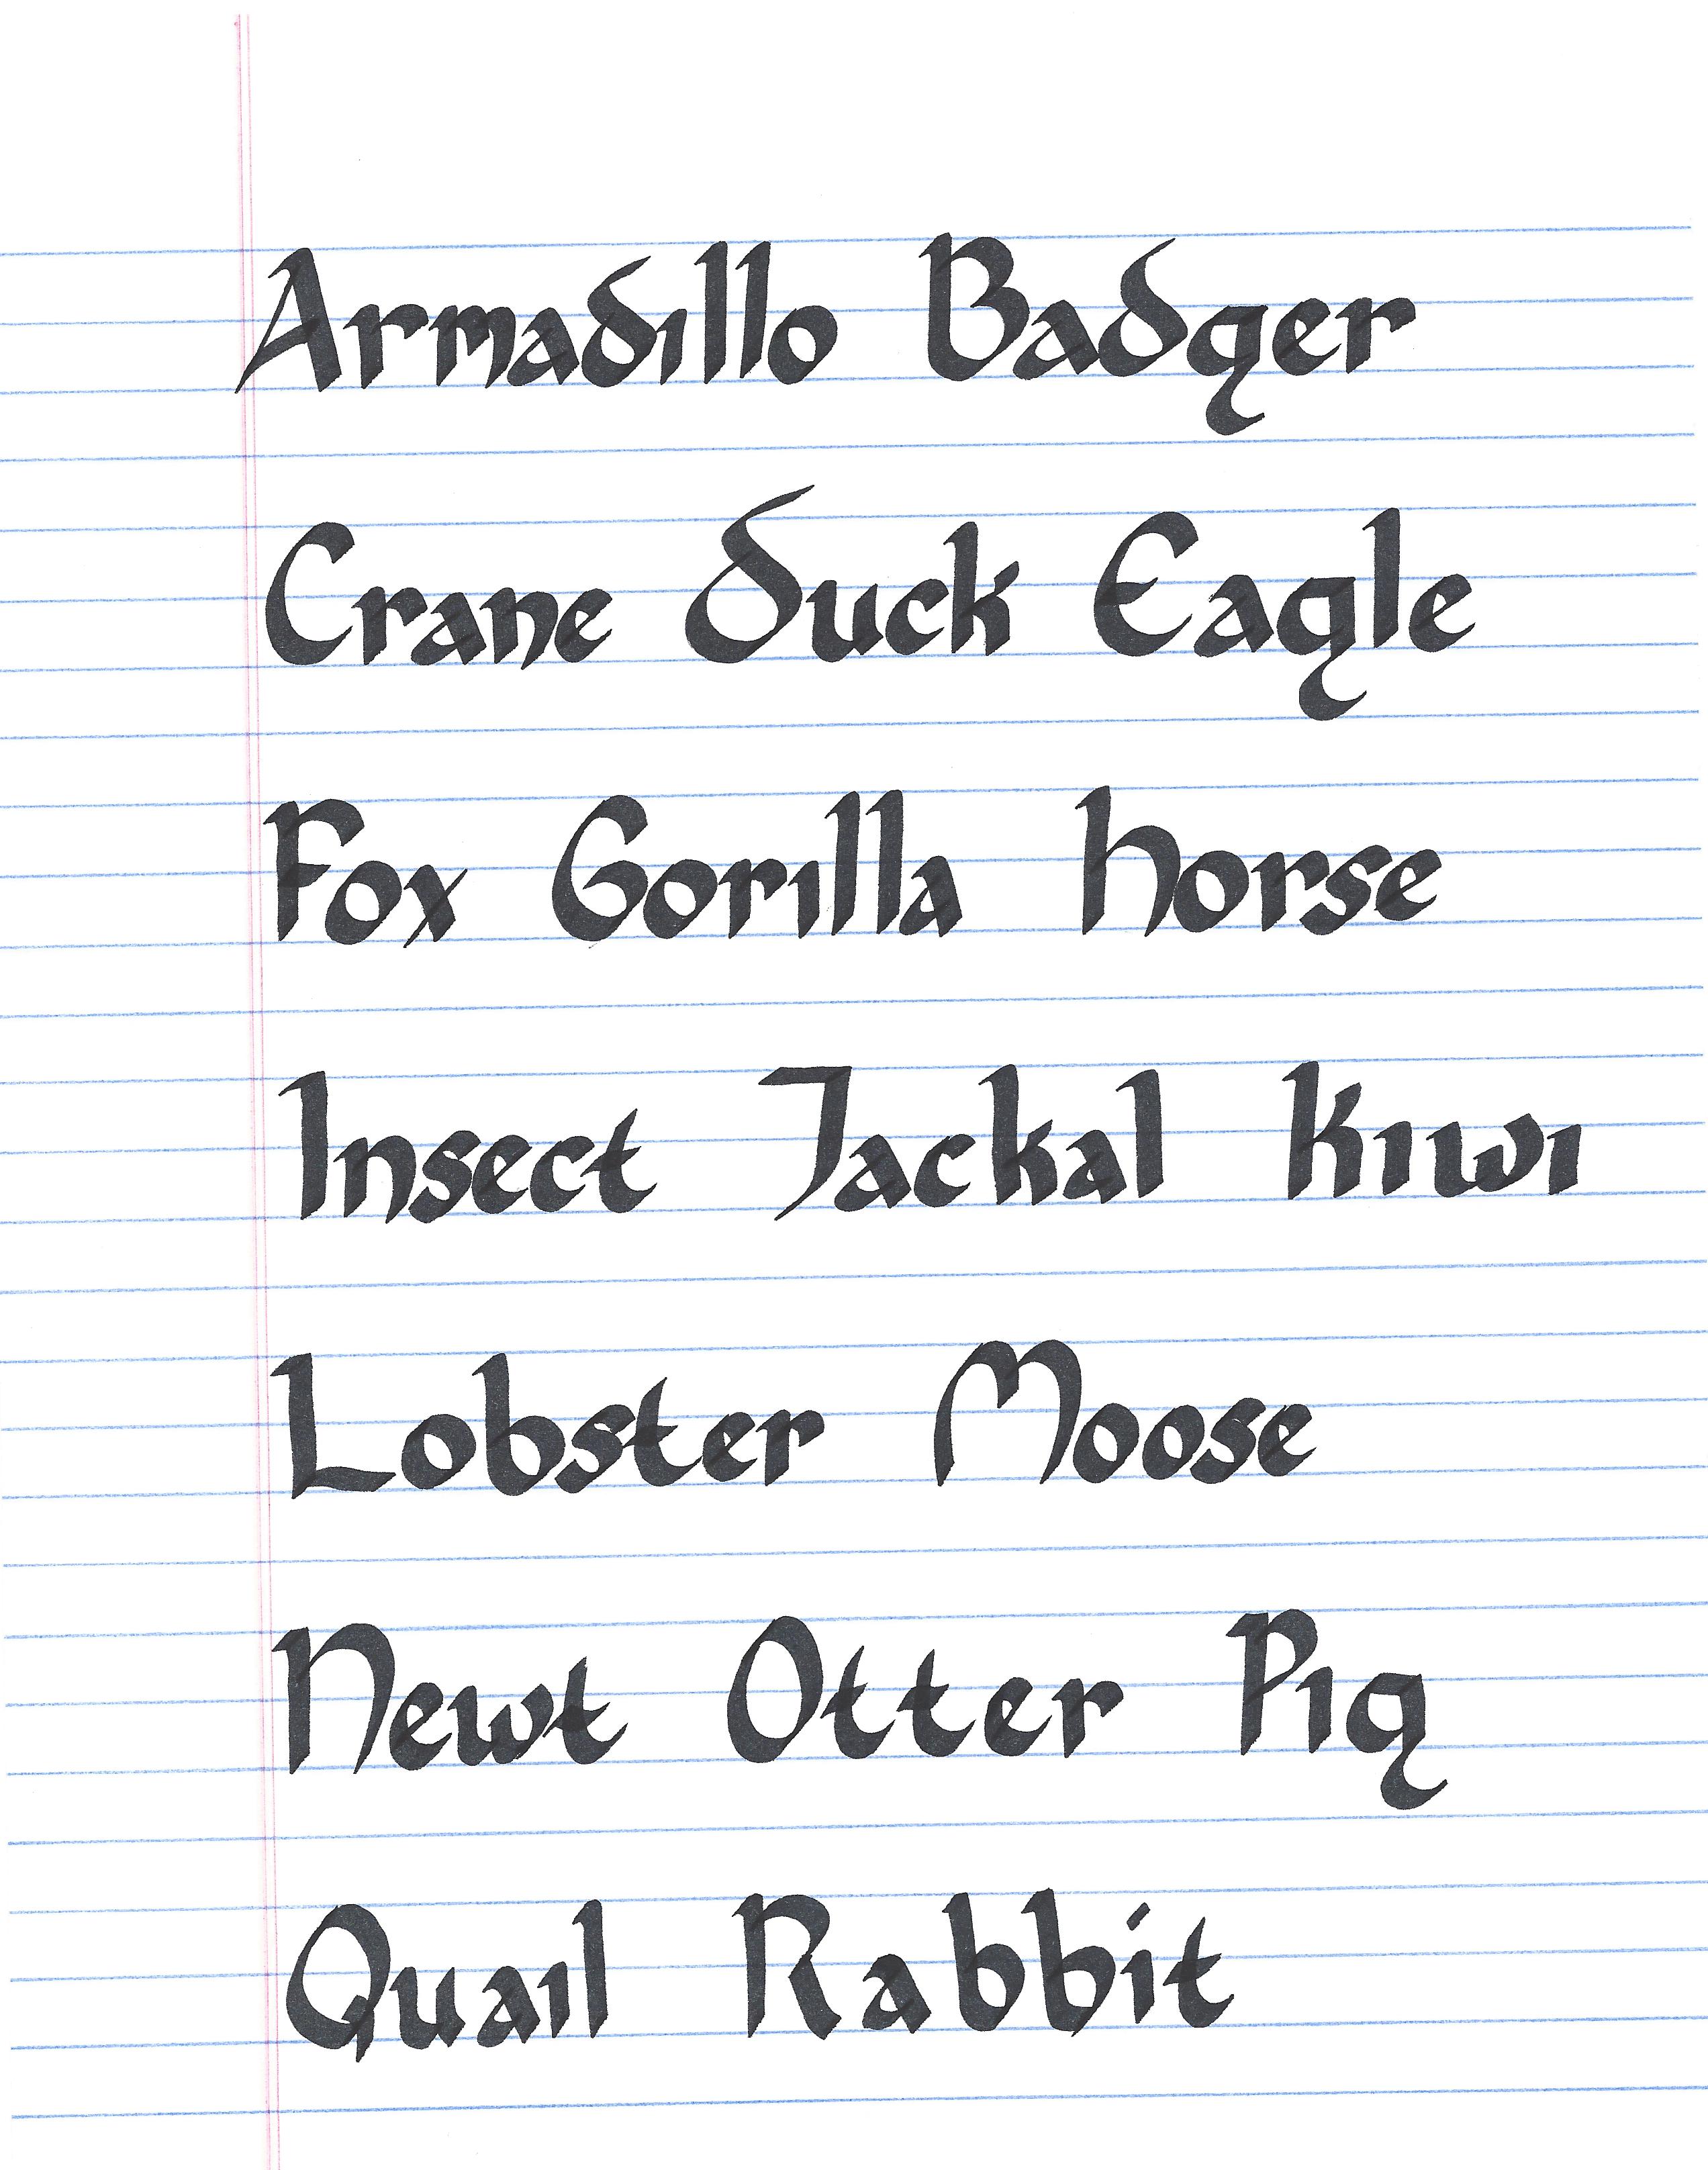 Armadillo Badger
Crane Duck Eagle
Fox Gorilla Horse
Insect Jackal Kiwi
Lobster Moose
Newt Otter Pig
Quail Rabbit